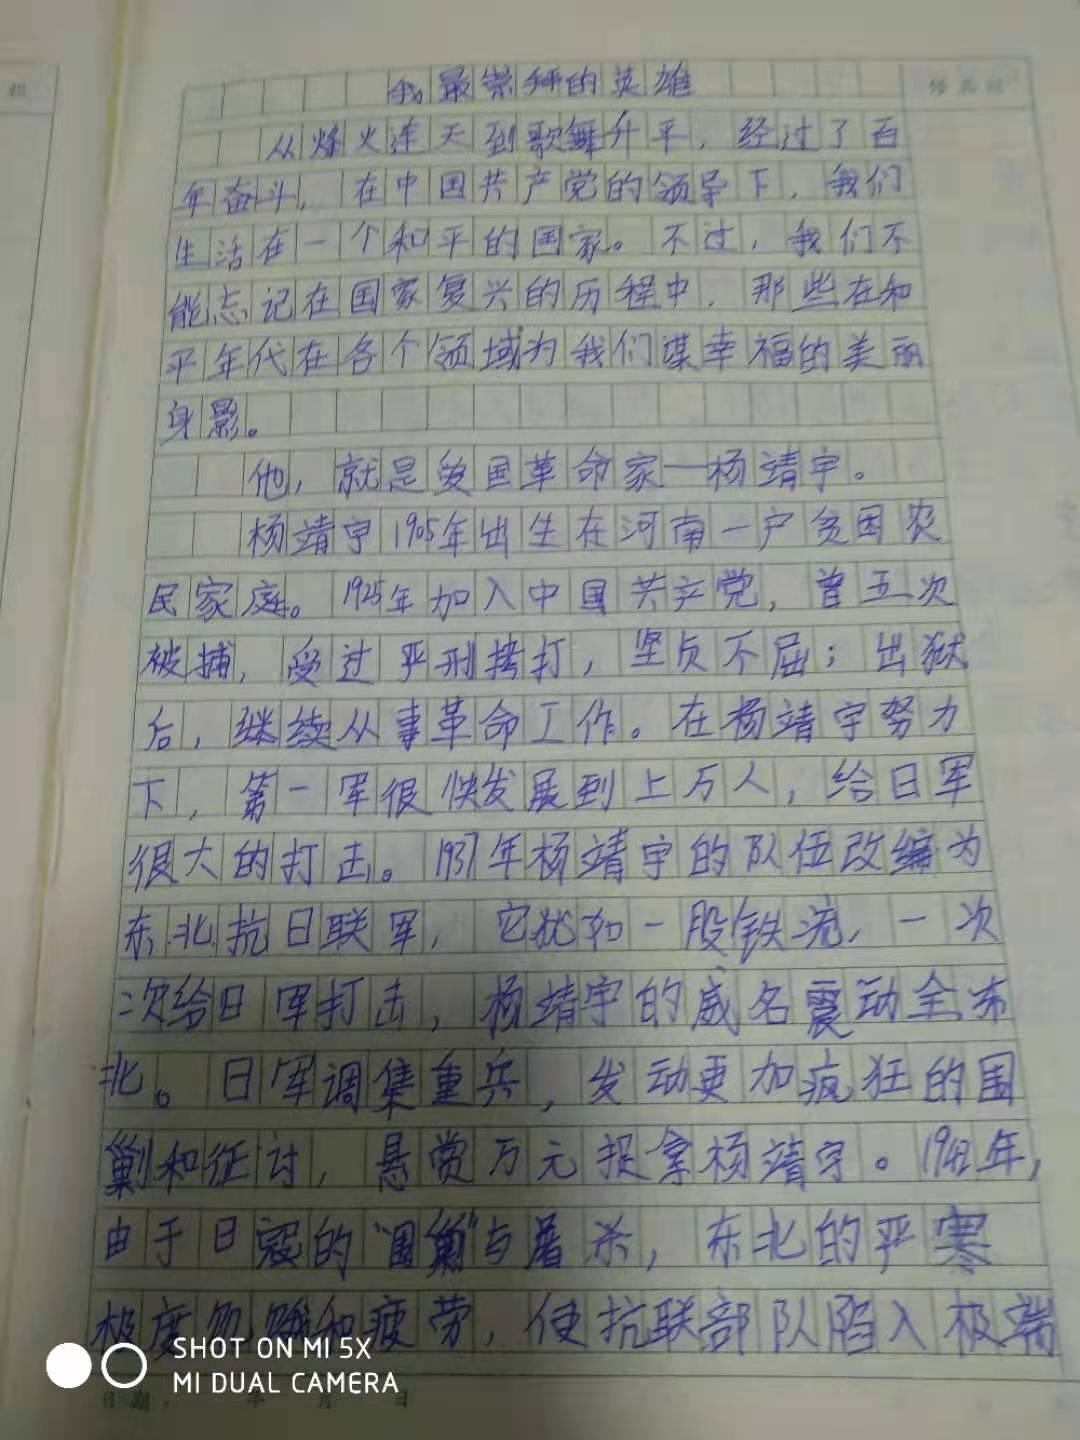 我最崇拜的英雄
从烽火连天到歌舞升平，经过了百
年奋斗，在中国共产党的领导下，我们
生活在一个和平的国家。不过，我们不
能忘记在国家复兴的历程中，那些在和
平年代在各个领域为我们谋幸福的美丽
身影。
他，就是爱国革命家—杨靖宇。
杨靖宇1905年出生在河南一户贫困农
民家庭。1925年加入中国共产党，曾五次
被捕，受过严刑拷打，坚贞不屈；出狱
后，继续从事革命工作。在杨靖宇努力
下，第一军很快发展到上万人，给日军
很大的打击。1937年杨靖宇的队伍改编为
东北抗日联军，它犹如一股铁流，一次
次给日军打击，杨靖宇的威名震动全东
北。日军调集重兵，发动更加疯狂的围
剿和征讨，悬赏万元捉拿杨靖宇。年，
由于日寇的"围剿"与屠杀，东北的严寒
极度饥饿和疲劳，使抗联部队陷入极端
SHOT ON MI 5X
MI DUAL CAMERA
日期： 年 月 日